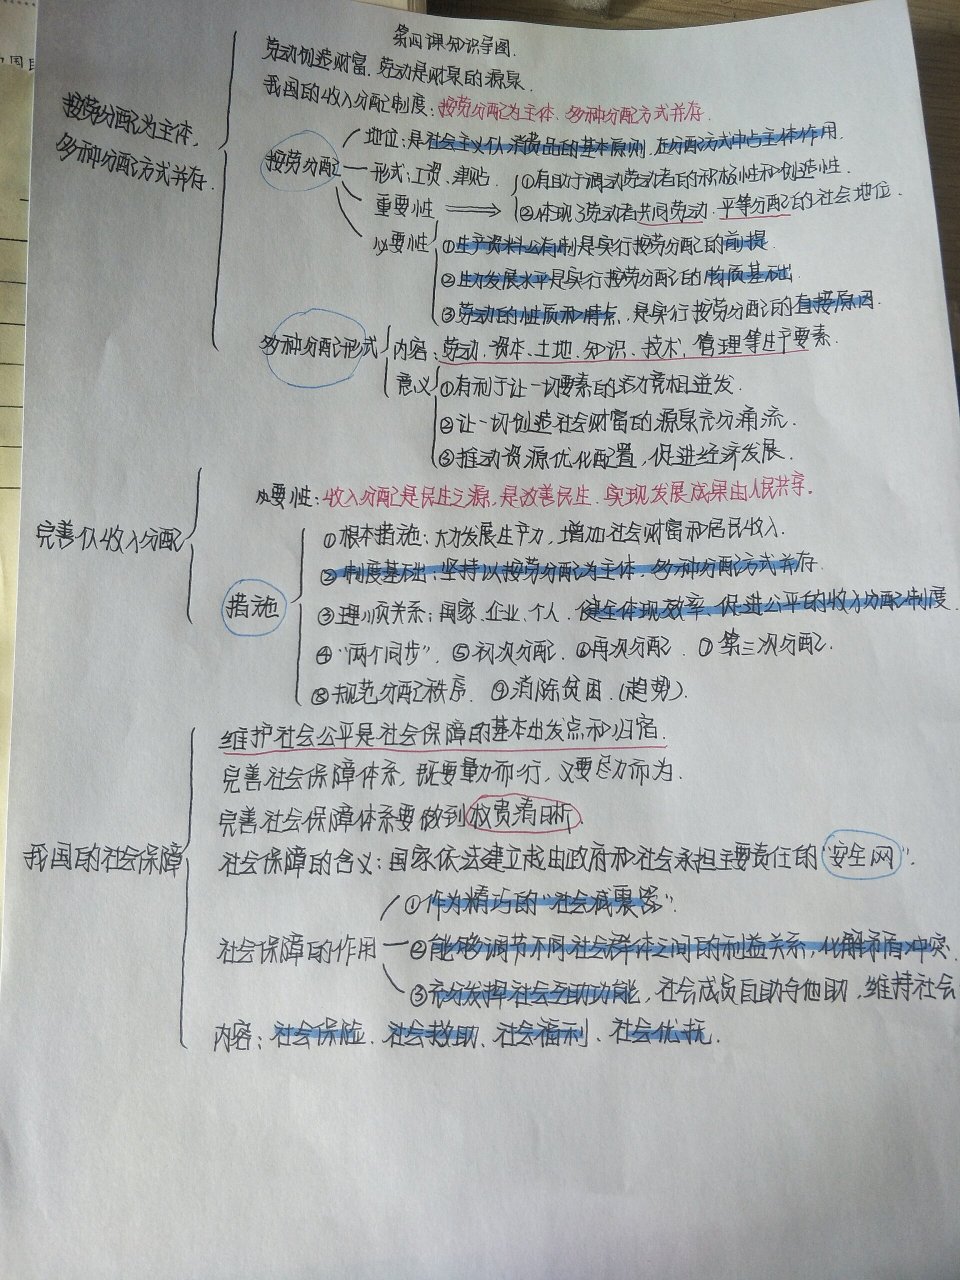 第四课知识导图.
劳动创造财富,劳动是财泉的源泉.
我国的收入分配制度:按劳分配为主体.多种分配方式并存.
按劳分配为主体,
多种分配方式并存.
按劳分配
地位:是社会主义个人消费品的基本原则,在分配方式中占主体作用.
形式:工资、津贴.
重要性
①有助于调动劳动者的积极性和创造性.
②体现了劳动者共同劳动.平等分配的社会地位.
必要性
①生产资料公有制是实行按劳分配的前提
②生力发展水平是实行按劳分配的物质基础.
③劳动的性质和特点,是实行按劳分配的直接原因.
多种分配形式
内容:劳动、资本、土地、知识、技术、管理等生产要素.
意义
①有利于让一切要素的活力竞相迸发.
②让一切创造社会财富的源泉充分涌流.
③推动资源优化配置,促进经济发展.
完善个人收入分配
必要性:收入分配是民生之源,是改善民生.实现发展成果由人民共享。
措施
①根本措施:大力发展生产力,增加社会财富和居民收入.
②制度基础:坚持以按劳分配为主体.多种分配方式并存.
③理顺关系:国家、企业、个人.健全体现效率、促进公平的收入分配制度.
④"两个同步". ⑤初次分配. ⑥再次分配. ⑦第三次分配.
⑧规范分配秩序. ⑨消除贫困.(趋势).
我国的社会保障
维护社会公平是社会保障的基本出发点和归宿.
完善社会保障体系,既要量力而行,又要尽力而为.
完善社会保障体系要做到权责清晰.
社会保障的含义:国家依法建立起由政府和社会承担主要责任的"安全网".
社会保障的作用
①作为精巧的"社会减震器".
②能够调节不同社会群体之间的利益关系,化解矛盾冲突.
③充分发挥社会互助功能,社会成员自助与他助,维持社会
内容:社会保险、社会救助、社会福利、社会优抚.